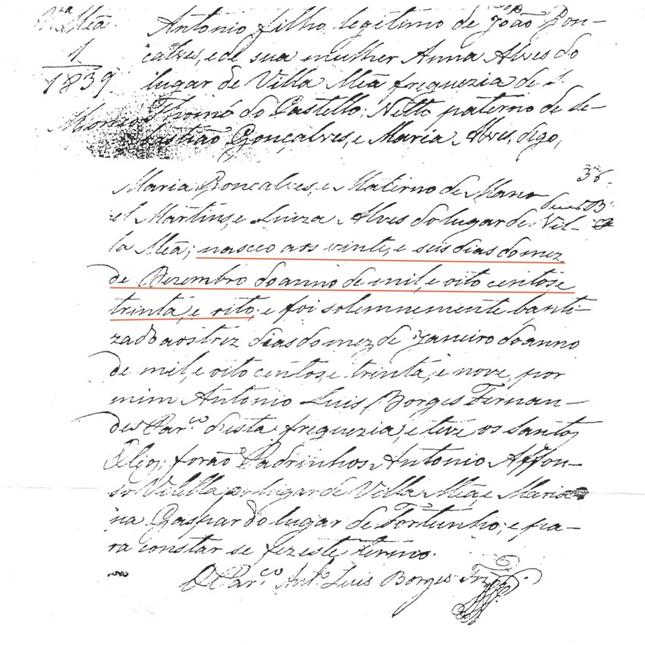 Vᵃ Meã
1
1839
Antonio filho legitimo de João Gon-
calves, e de sua mulher Anna Alves do
lugar de Villa Meã freguezia de S.
Thomé do Castello: Netto paterno de Se-
bastião Gonçalves, e Maria Alves, digo,
36
Maria Gonçalves, e Materno de Mano-
el Martins, e Luiza Alves do lugar de Vil-
la Meã; nasceo aos vinte, e seis dias do mez
de Dezembro do anno de mil, e oito centos, e
trinta, e oito: e foi solemnemente bauti-
zado aos trez dias do mez de Janeiro do anno
de mil, e oito centos, e trinta, e nove, por
mim Antonio Luis Borges Fernan-
des Parᶜᵒ desta freguezia, e teve os santos
Oleos; forão Padrinhos Antonio Affon-
so Vilella do lugar de Villa Meã, e Maria-
na Gaspar do lugar de Fortunho; e pa-
ra constar se fez este termo.
O Parᶜᵒ Antᵒ Luis Borges Frz